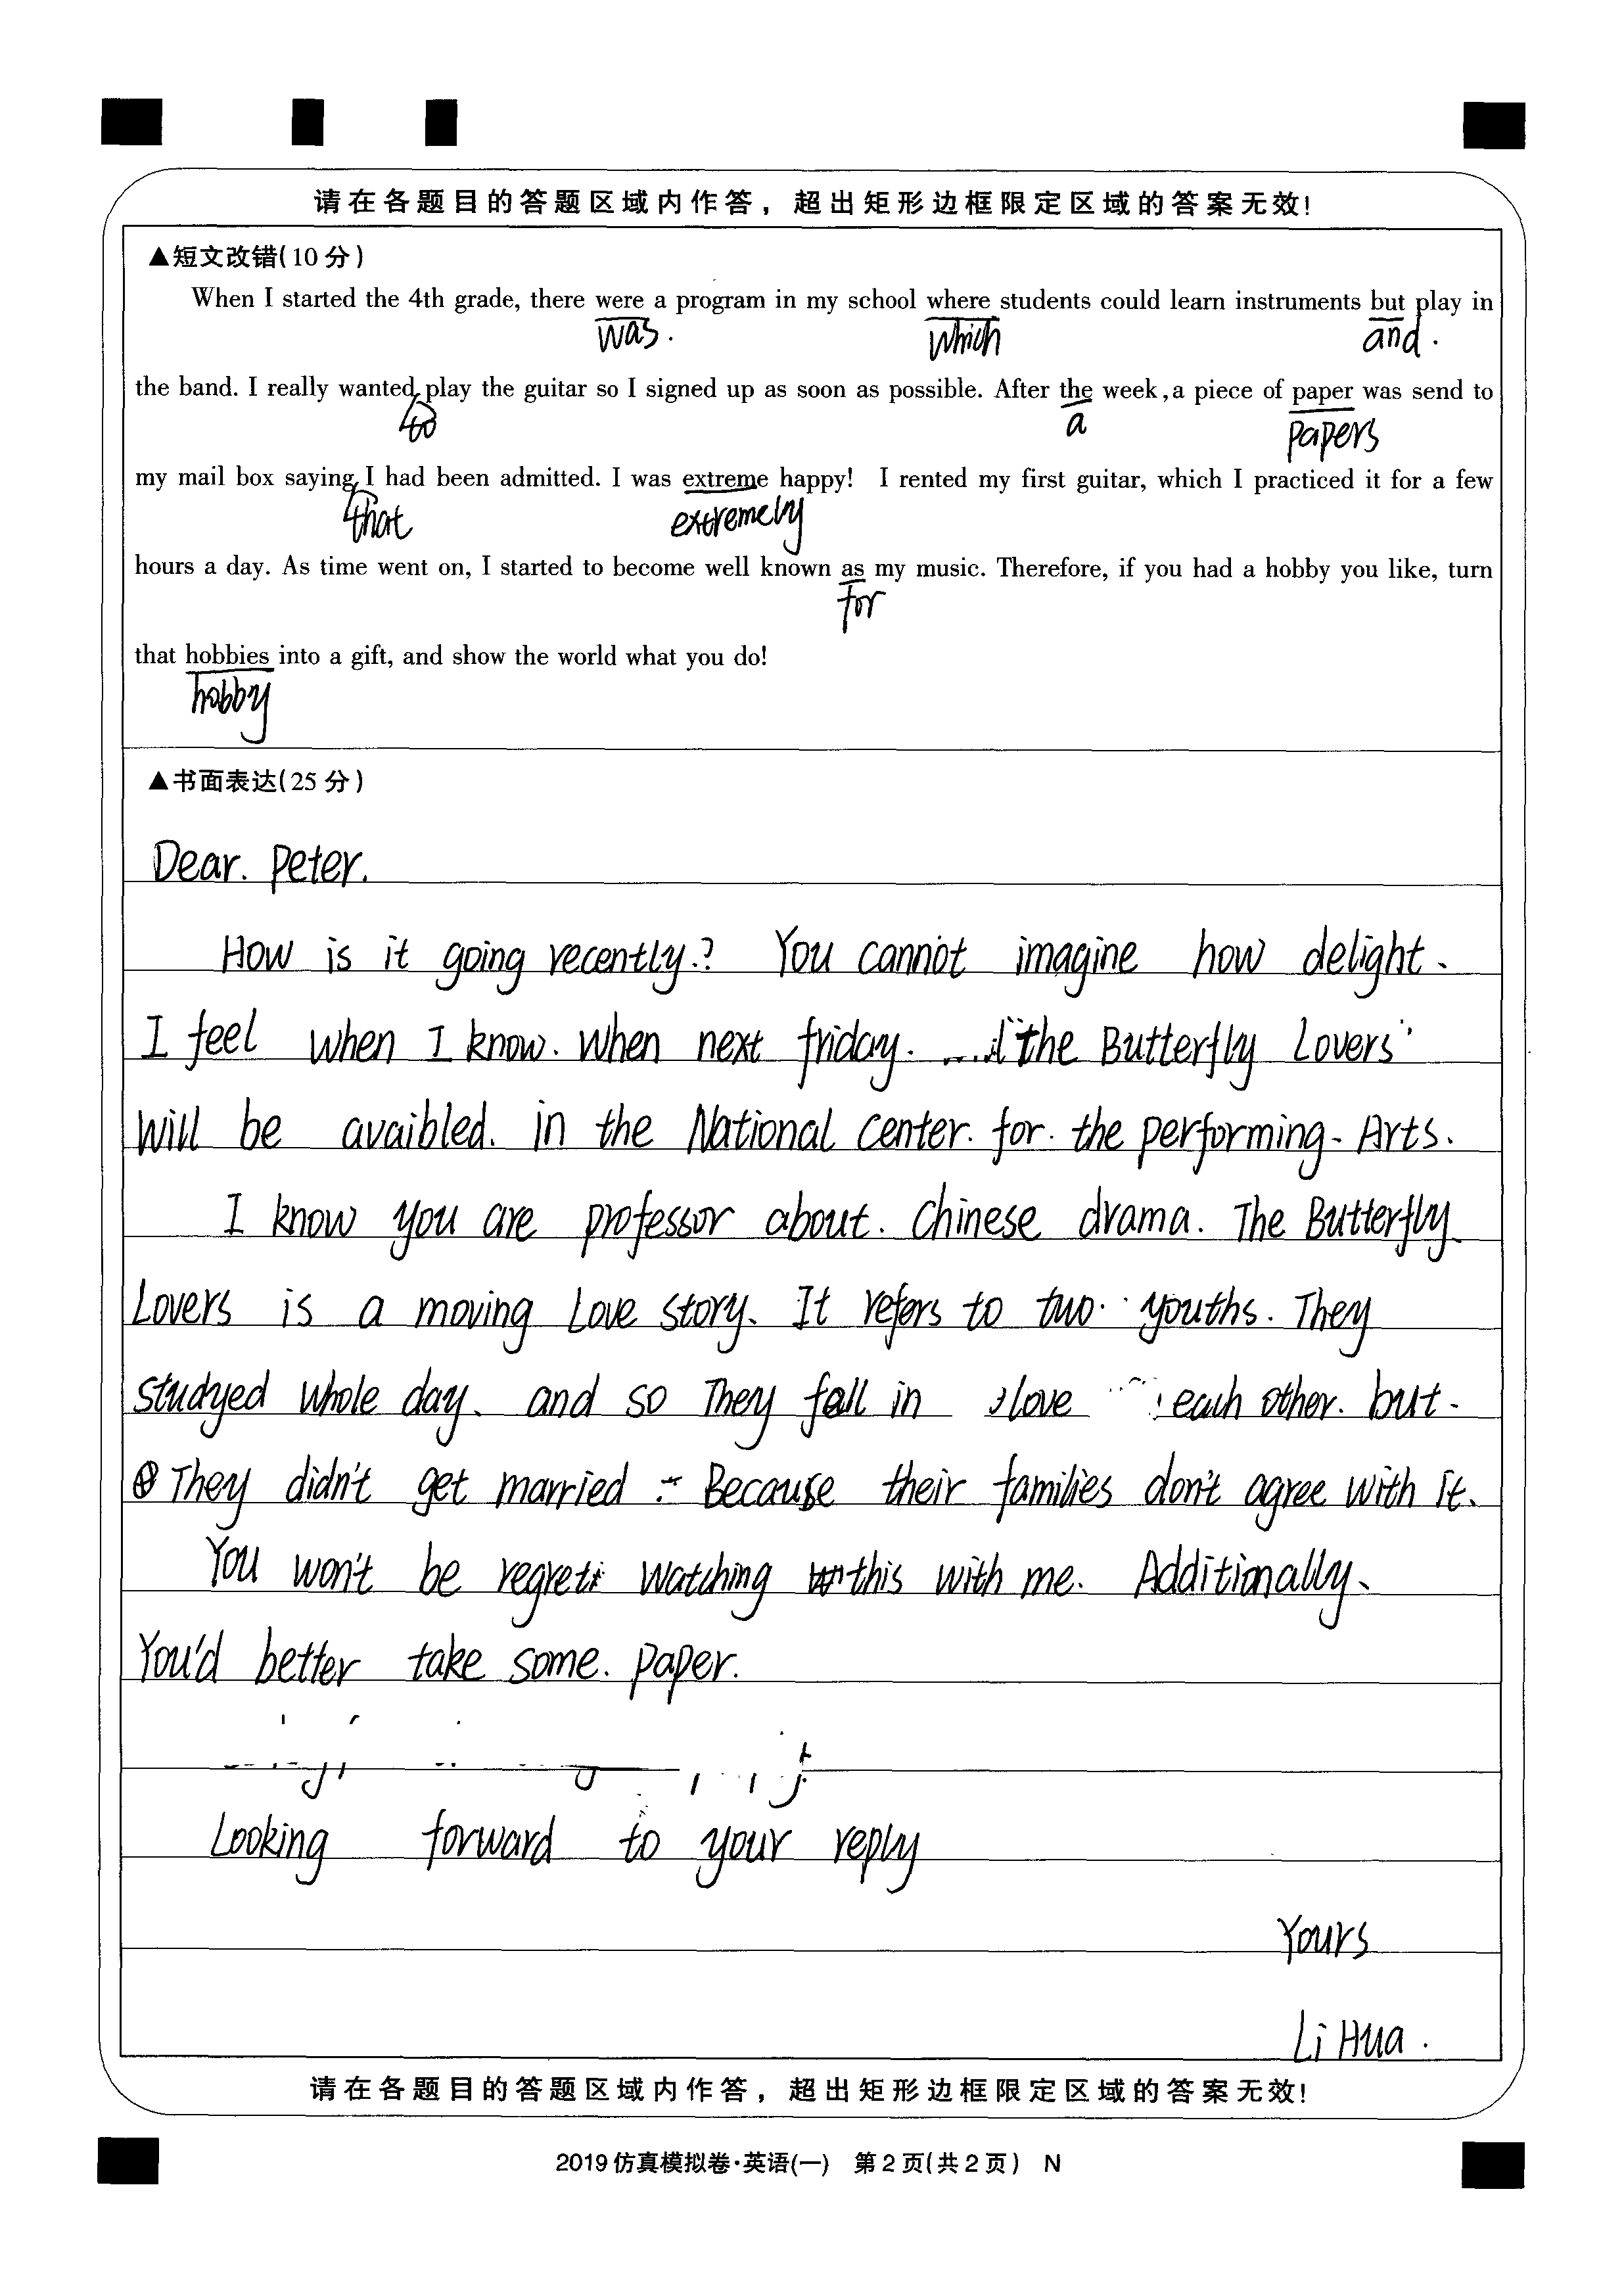 请在各题目的答题区域内作答，超出矩形边框限定区域的答案无效!
▲短文改错(10分)
When I started the 4th grade, there were a program in my school where students could learn instruments but play in
was. which and.
the band. I really wanted play the guitar so I signed up as soon as possible. After the week, a piece of paper was send to
to a papers
my mail box saying I had been admitted. I was extreme happy! I rented my first guitar, which I practiced it for a few
that extremely
hours a day. As time went on, I started to become well known as my music. Therefore, if you had a hobby you like, turn
for
that hobbies into a gift, and show the world what you do!
hobby
▲书面表达(25分)
Dear. Peter.
How is it going recently.? You cannot imagine how delight.
I feel when I know. when next friday. "the Butterfly Lovers"
will be avaibled. in the National center. for. the performing. Arts.
I know you are professor about. Chinese drama. The Butterfly
Lovers is a moving Love story. It refers to two. youths. They
studyed whole day. and so They fall in love each other. but.
They didn't get married Because their families don't agree with it.
You won't be regret watching this with me. Additionally.
You'd better take some. paper.
Looking forward to your reply
Yours
Li Hua.
请在各题目的答题区域内作答，超出矩形边框限定区域的答案无效!
2019仿真模拟卷·英语(一) 第2页(共2页) N